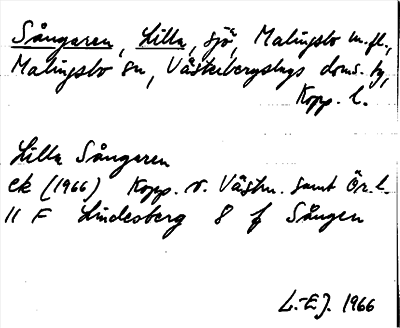 Sångaren, Lilla, sjö, Malingsbo m.fl.,
Malingsbo sn, Västerbergslags doms. hy,
Kopp. l.
Lilla Sångaren
ek (1966) Kopp. o. Västm. samt Ör. l.
11 F Lindesberg 8 f Sången
L.-EJ. 1966